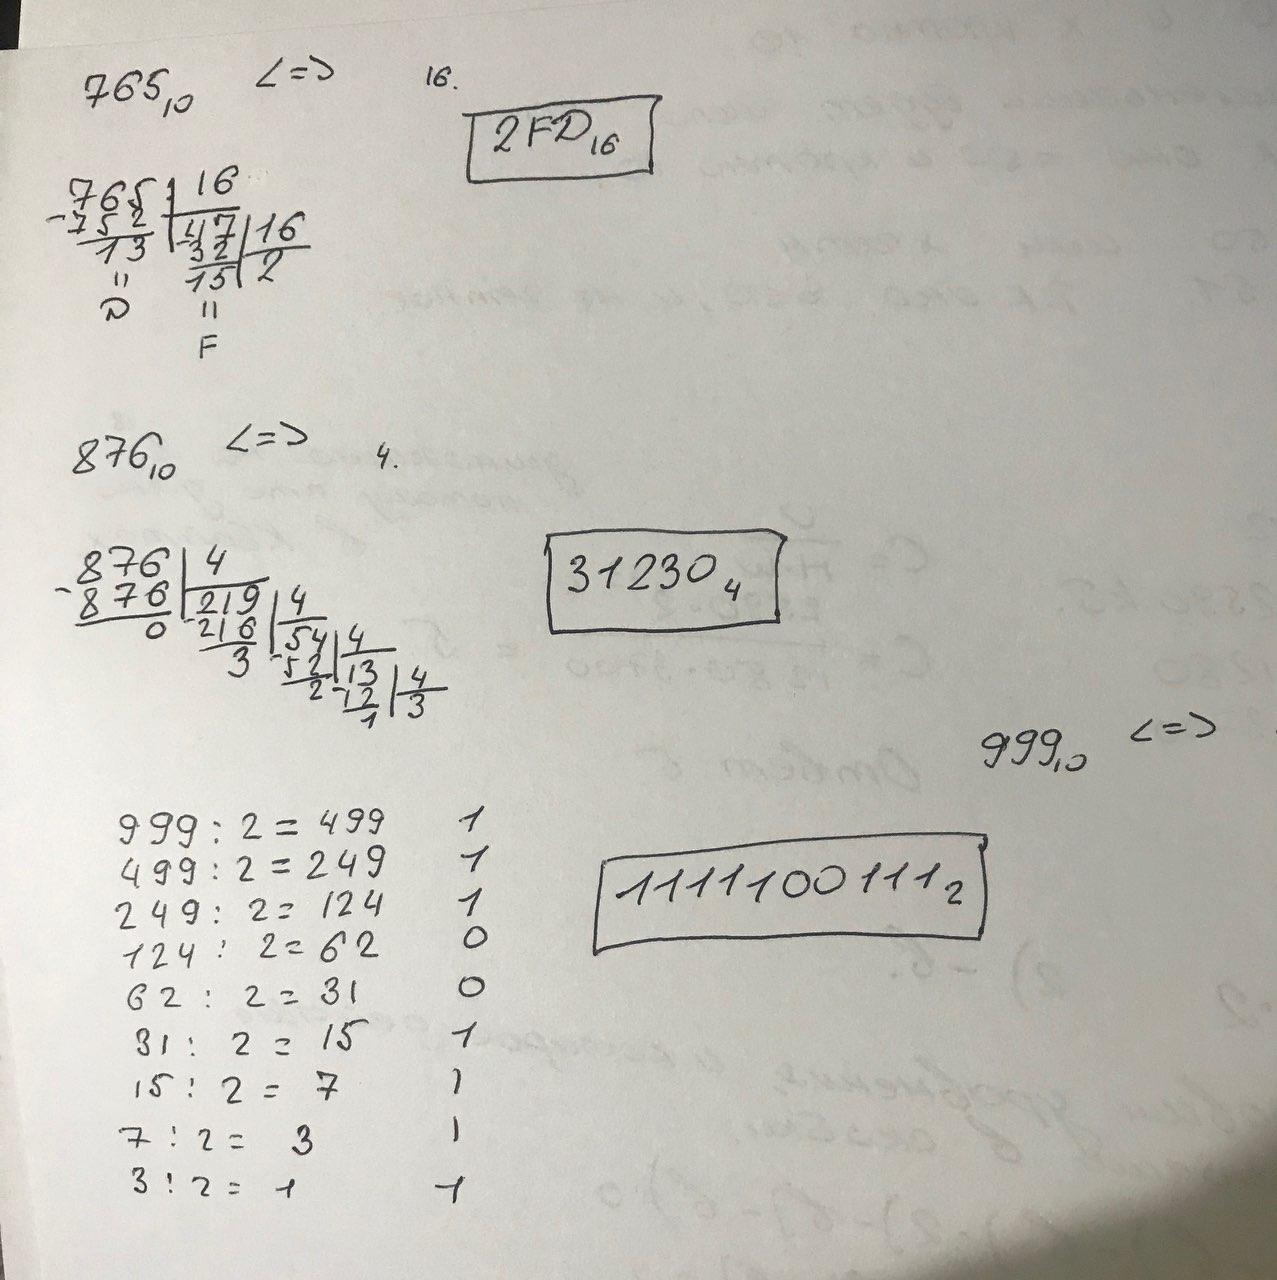 765₁₀ <=> 16.
2FD₁₆
765 | 16
-752 | 47 | 16
13 -32 | 2
15
" "
D F
876₁₀ <=> 4.
31230₄
876 | 4
-876 | 219 | 4
0 -216 | 54 | 4
3 -52 | 13 | 4
2 -12 | 3
1
999₁₀ <=>
999 : 2 = 499 1
499 : 2 = 249 1
249 : 2 = 124 1
124 : 2 = 62 0
62 : 2 = 31 0
31 : 2 = 15 1
15 : 2 = 7 1
7 : 2 = 3 1
3 : 2 = 1 1
1111100111₂